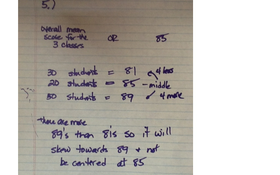 5.)
overall mean
score for the OR 85
3 classes
30 students = 81 4 less
20 students = 85 - middle
50 students = 89 4 more
there are more
89's than 81s so it will
skew towards 89 & not
be centered at 85